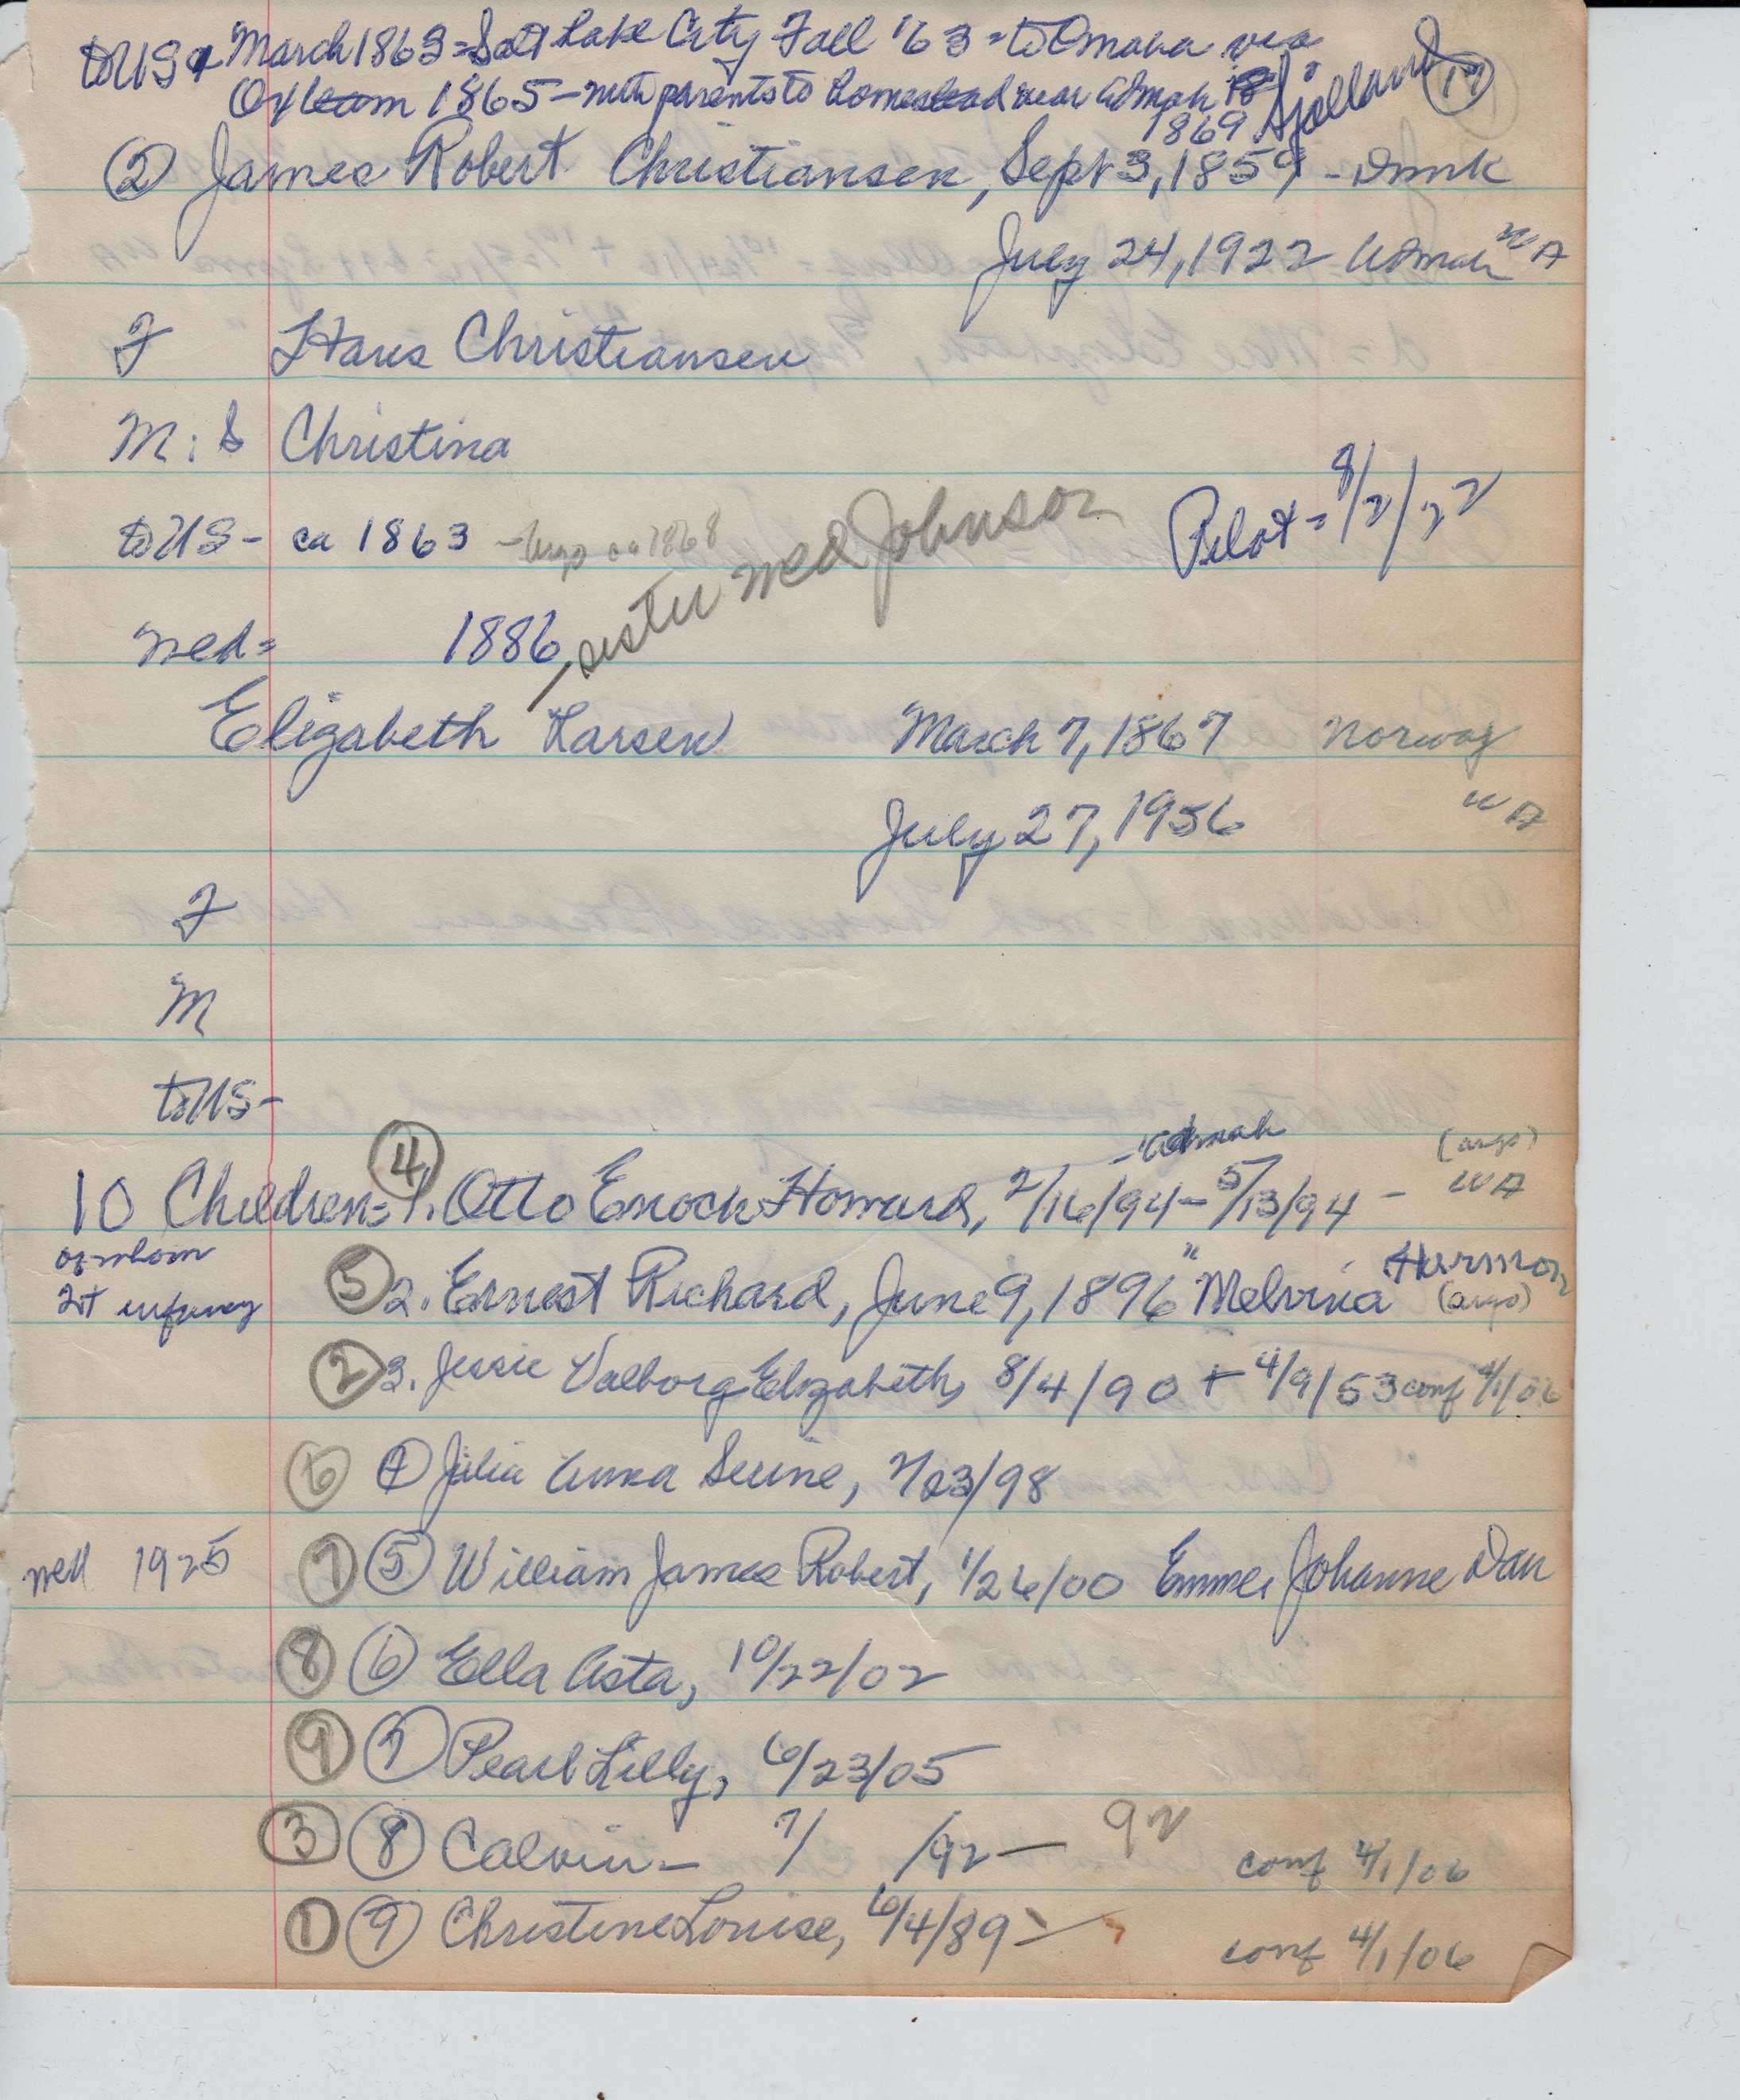 to US - March 1863 = Salt Lake City Fall '63 = to Omaha via
Ox team 1865 - with parents to homestead near Admah 1869 Sjelland (17)
(2) James Robert Christiansen, Sept 3, 1859 - Dnmk
July 24, 1922 Admah WA
F Hans Christiansen
M: S Christina
to US - ca 1863 - args ca 1868
Pilot = 8/2/22
wed = 1886 - sister wed Johnson
Elizabeth Larsen March 7, 1867 Norway
July 27, 1956 WA
F
M
to US -
- Admah (args)
10 Children = (4) 1. Otto Enoch Howard, 2/16/94 - 5/13/94 - WA
of whom
2 + infancy (5) 2. Ernest Richard, June 9, 1896 " Melvina Hermon (args)
(2) 3. Jessie Valborg Elizabeth, 8/4/90 + 4/9/53 conf 4/1/06
(6) (4) Julia Anna Serine, 7/23/98
wed 1925 (7) (5) William James Robert, 1/26/00 Emma Johanne Dau
(8) (6) Ella Asta, 10/22/02
(9) (7) Pearl Lilly, 6/23/05
(3) (8) Calvin - 7/ /92 - 92 conf 4/1/06
(1) (9) Christine Louise, 6/4/89 - conf 4/1/06